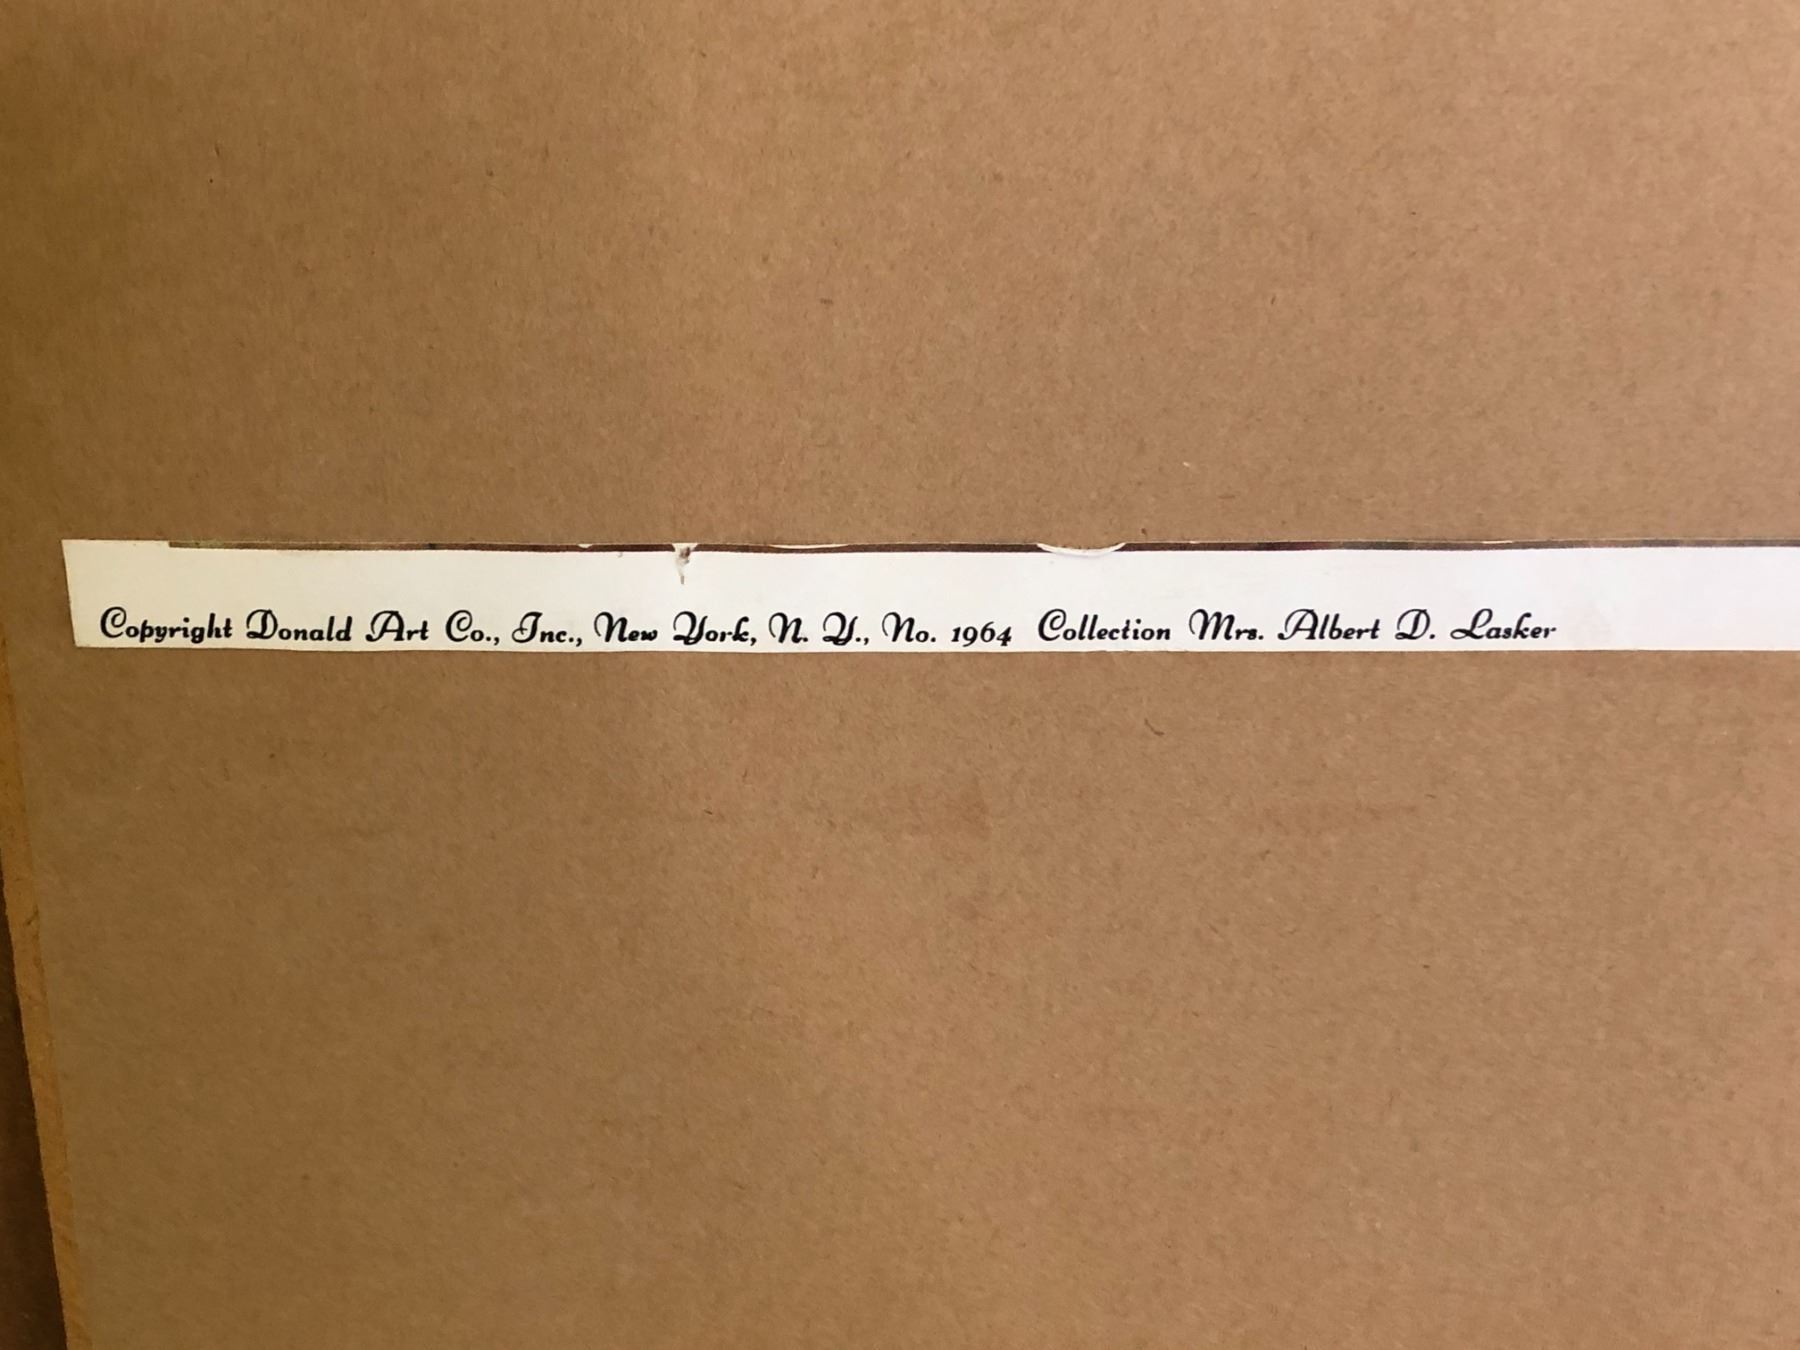 Copyright Donald Art Co., Inc., New York, N. Y., No. 1964 Collection Mrs. Albert D. Lasker